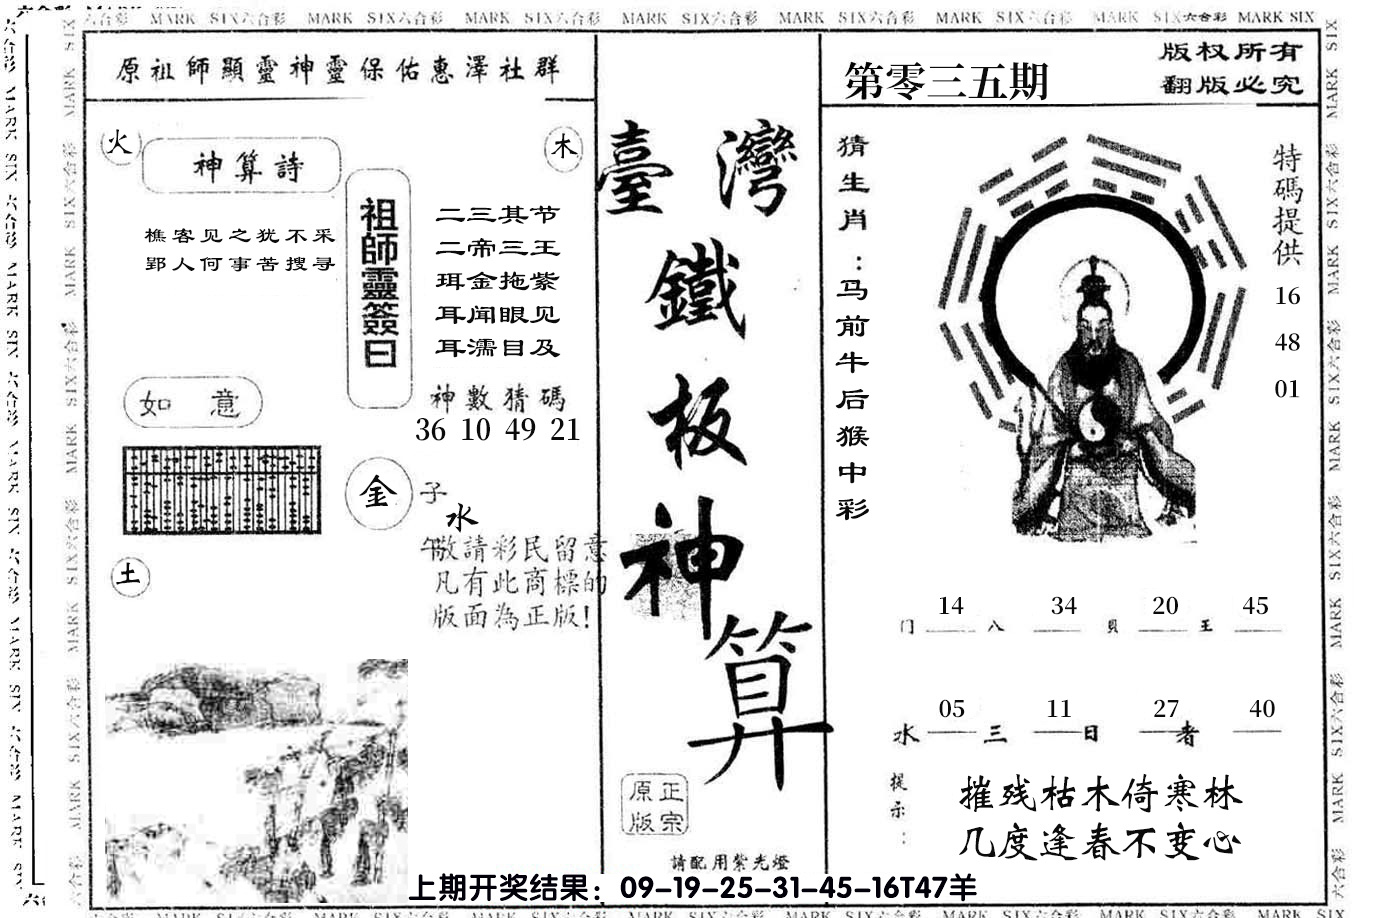 原祖師顯靈神靈保佑惠澤社群
火
木
神算詩
樵客见之犹不采
郢人何事苦搜寻
祖師靈簽曰
二三其节
二帝三王
珥金拖紫
耳闻眼见
耳濡目及
神數猜碼
36 10 49 21
如意
金
子
水
午
敬請彩民留意
凡有此商標的
版面為正版!
土
臺灣
鐵
板
神
算
正宗
原版
請配用紫光燈
第零三五期
版权所有
翻版必究
猜生肖:马前牛后猴中彩
特碼提供
16
48
01
门 14 八 34 貝 20 王 45
水 05 三 11 日 27 者 40
提示:
摧残枯木倚寒林
几度逢春不变心
上期开奖结果：09-19-25-31-45-16T47羊
MARK SIX六合彩 MARK SIX六合彩 MARK SIX六合彩 MARK SIX六合彩 MARK SIX六合彩 MARK SIX六合彩 MARK SIX六合彩 MARK SIX